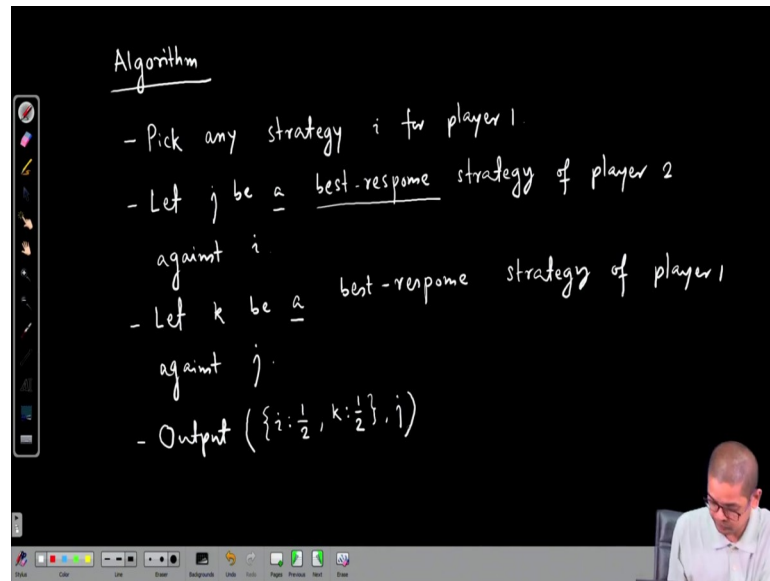 Algorithm
- Pick any strategy i for player 1.
- Let j be a best-response strategy of player 2
against i.
- Let k be a best-response strategy of player 1
against j.
- Output ({i:1/2, k:1/2}, j)
Stylus Color Line Eraser Backgrounds Undo Redo Pages Previous Next Erase